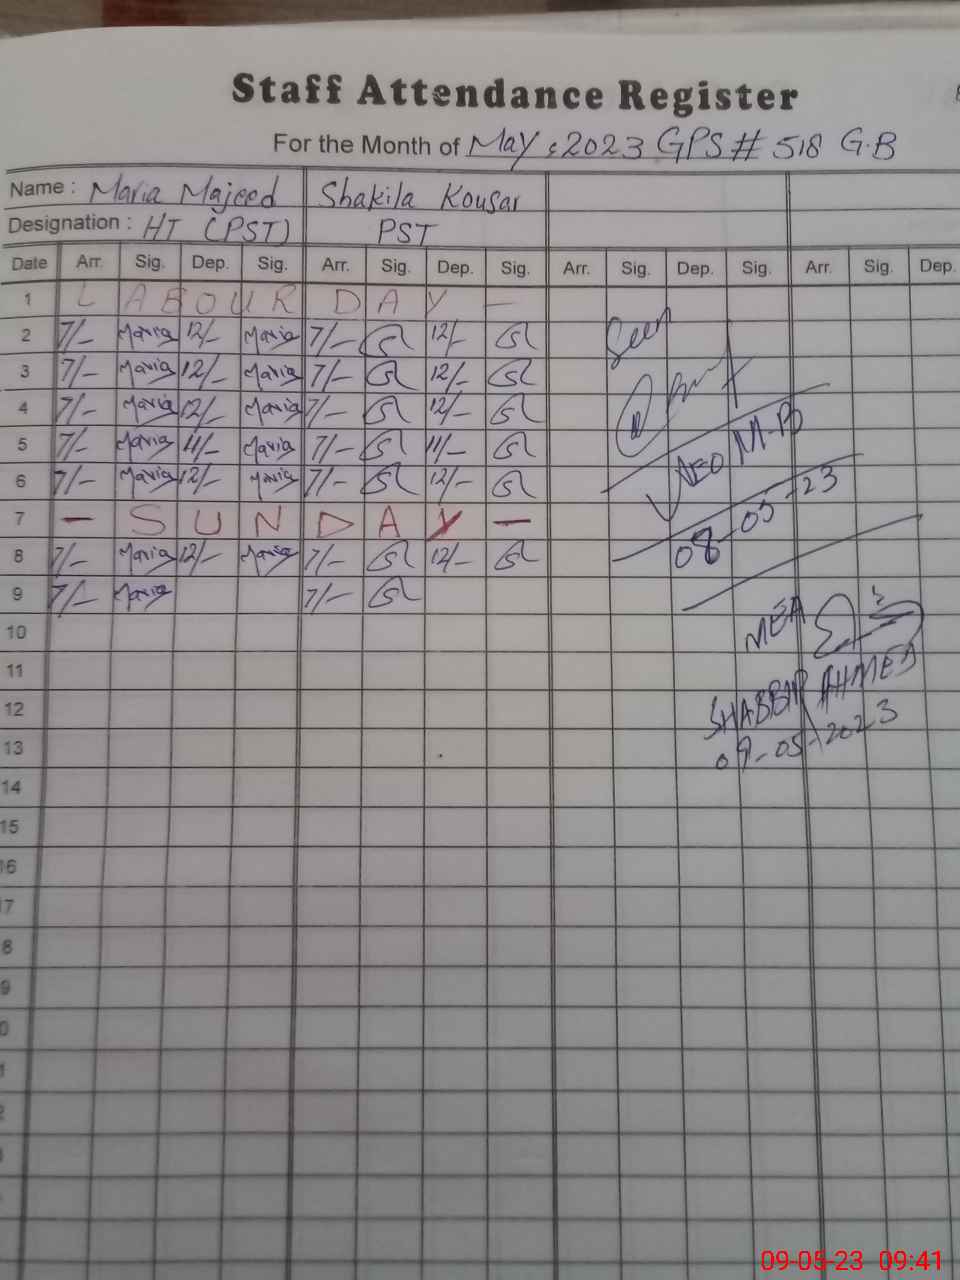 Staff Attendance Register
For the Month of May, 2023 GPS # 518 G.B
Name : Maria Majeed Shakila Kousar
Designation : HT (PST) PST
Date Arr. Sig. Dep. Sig. Arr. Sig. Dep. Sig. Arr. Sig. Dep. Sig. Arr. Sig. Dep.
1 LABOUR DAY —
2 7/- Maria 12/- Maria 7/- 12/-
Seen
3 7/- Maria 12/- Maria 7/- 12/-
4 7/- Maria 12/- Maria 7/- 12/-
5 7/- Maria 11/- Maria 7/- 11/-
AEO M.P
6 7/- Maria 12/- Maria 7/- 12/-
7 — SUNDAY —
08-05-23
8 7/- Maria 12/- Maria 7/- 12/-
9 7/- Maria 7/-
10
MEA
11
12
SHABBIR AHMED
13
09-05-2023
14
15
16
17
8
9
0
1
2
09-05-23 09:41